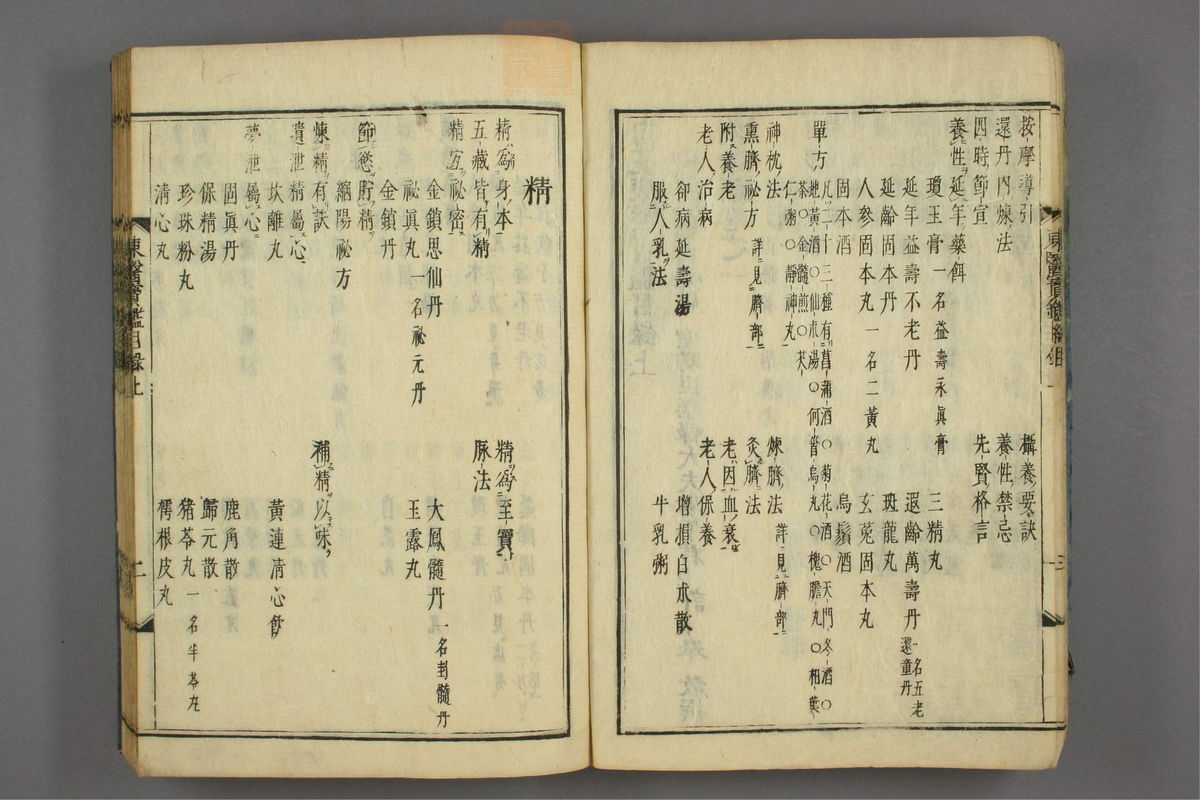 按摩導引
攝養要訣
還丹內煉法
養性禁忌
四時節宣
先賢格言
養性延年藥餌
瓊玉膏一名益壽永眞膏
三精丸
延年益壽不老丹
遐齡萬壽丹一名五老還童丹
延齡固本丹
斑龍丸
人參固本丸一名二黃丸
玄菟固本丸
固本酒
烏鬚酒
單方凡二十三種有菖蒲酒○菊花酒○天門冬酒○
地黃酒○仙朮湯○何首烏丸○槐膽丸○柏葉
茶○金髓煎○芡
仁粥○靜神丸
神枕法
煉臍法詳見臍部
熏臍祕方詳見臍部
灸臍法
附養老
老因血衰
老人治病
老人保養
却病延壽湯
增損白朮散
服人乳法
牛乳粥
精
精爲身本
精爲至寶
五藏皆有精
脉法
精宜祕密
金鎖思仙丹
大鳳髓丹一名封髓丹
祕眞丸一名祕元丹
玉露丸
金鎖丹
節慾貯精
縮陽祕方
煉精有訣
補精以味
遺泄精屬心
坎離丸
黃連淸心飮
夢泄屬心
固眞丹
鹿角散
保精湯
歸元散
珍珠粉丸
猪苓丸一名半苓丸
淸心丸
樗根皮丸
東醫寶鑑目錄上
二